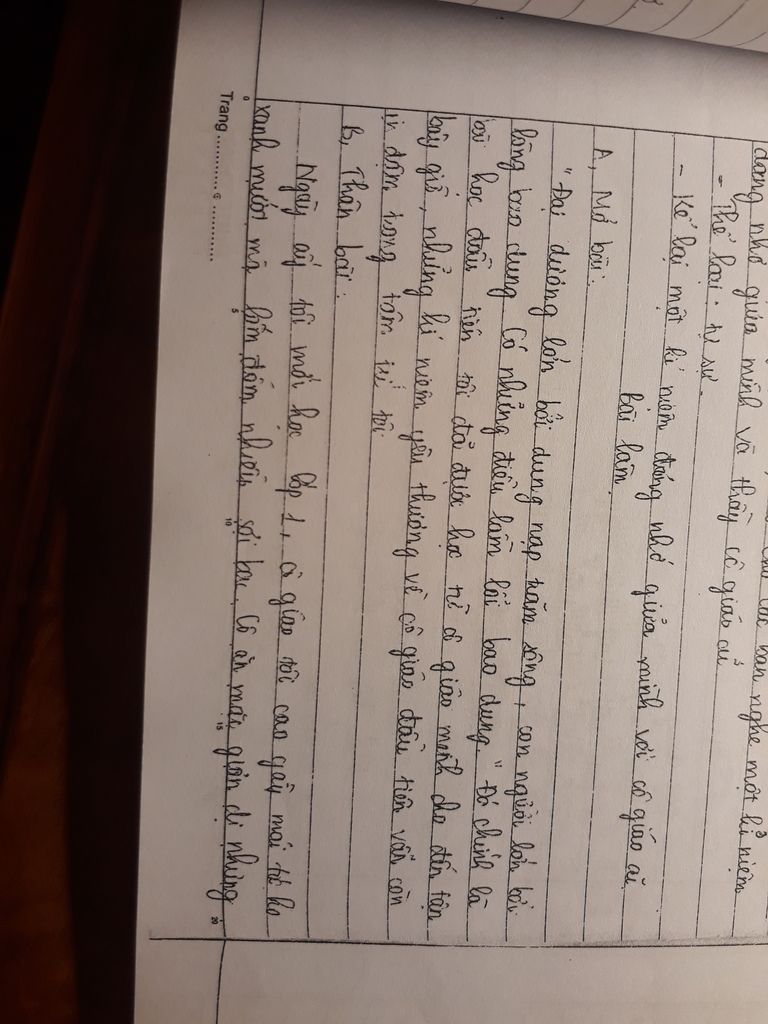 cho các bạn nghe một kỉ niệm
đáng nhớ giữa mình và thầy cô giáo cũ
- Thể loại: tự sự.
- Kể lại một kỉ niệm đáng nhớ giữa mình với cô giáo cũ
bài làm
A, Mở bài:
"Đại dương lớn bởi dung nạp trăm sông, con người lớn bởi
lòng bao dung Có những điều lầm lỗi bao dung" Đó chính là
bài học đầu tiên tôi đã được học từ cô giáo mình cho đến tận
bây giờ, những kỉ niệm yêu thương về cô giáo đầu tiên vẫn còn
in đậm trong tâm trí tôi.
B, Thân bài:
Ngày ấy tôi mới học lớp 1, cô giáo tôi cao gầy mái tóc
xanh mướt mà lốm đốm nhiều sợi bạc. Cô ăn mặc giản dị nhưng
Trang
0 5 10 15 20